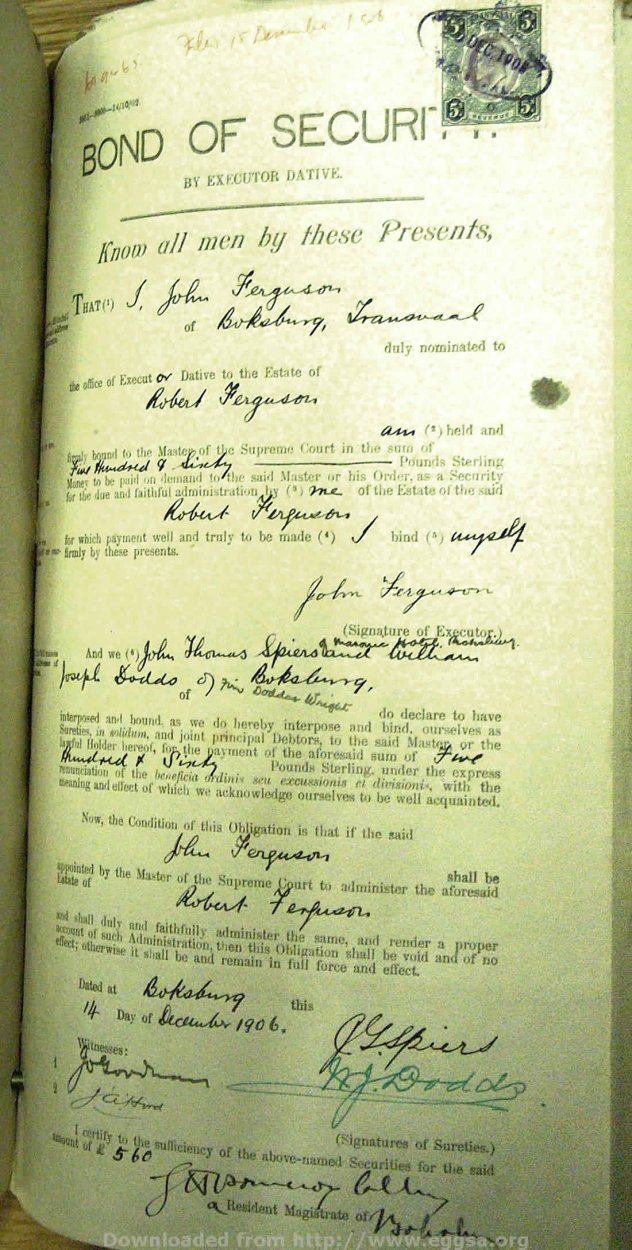 Filed 15 December 1906
BOND OF SECURITY.
BY EXECUTOR DATIVE.
Know all men by these Presents,
THAT (1) I, John Ferguson
of Boksburg, Transvaal
duly nominated to
the office of Executor Dative to the Estate of
Robert Ferguson
am (2) held and
firmly bound to the Master of the Supreme Court in the sum of
Five Hundred & Sixty Pounds Sterling
Money to be paid on demand to the said Master or his Order, as a Security
for the due and faithful administration by (3) me of the Estate of the said
Robert Ferguson
for which payment well and truly to be made (4) I bind (5) myself
firmly by these presents.
John Ferguson
(Signature of Executor.)
of Masonic Hotel, Boksburg.
And we (6) John Thomas Spiers and William
Joseph Dodds of Boksburg,
of Doddas Wright
do declare to have
interposed and bound, as we do hereby interpose and bind, ourselves as
Sureties, in solidum, and joint principal Debtors, to the said Master or the
lawful Holder hereof, for the payment of the aforesaid sum of Five
Hundred & Sixty Pounds Sterling, under the express
renunciation of the beneficia ordinis seu excussionis et divisionis, with the
meaning and effect of which we acknowledge ourselves to be well acquainted.
Now, the Condition of this Obligation is that if the said
John Ferguson
shall be
appointed by the Master of the Supreme Court to administer the aforesaid
Estate of
Robert Ferguson
and shall duly and faithfully administer the same, and render a proper
account of such Administration, then this Obligation shall be void and of no
effect; otherwise it shall be and remain in full force and effect.
Dated at Boksburg this
14 Day of December 1906.
Witnesses:
J T Spiers
1
W. J. Dodds
2
(Signatures of Sureties.)
I certify to the sufficiency of the above-named Securities for the said
amount of £ 560
a Resident Magistrate of
Downloaded from http://www.eggsa.org